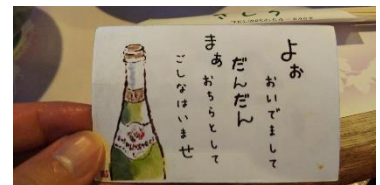 よぉ
おいでまして
だんだん
まぁ
おちらとして
ごしなはいませ